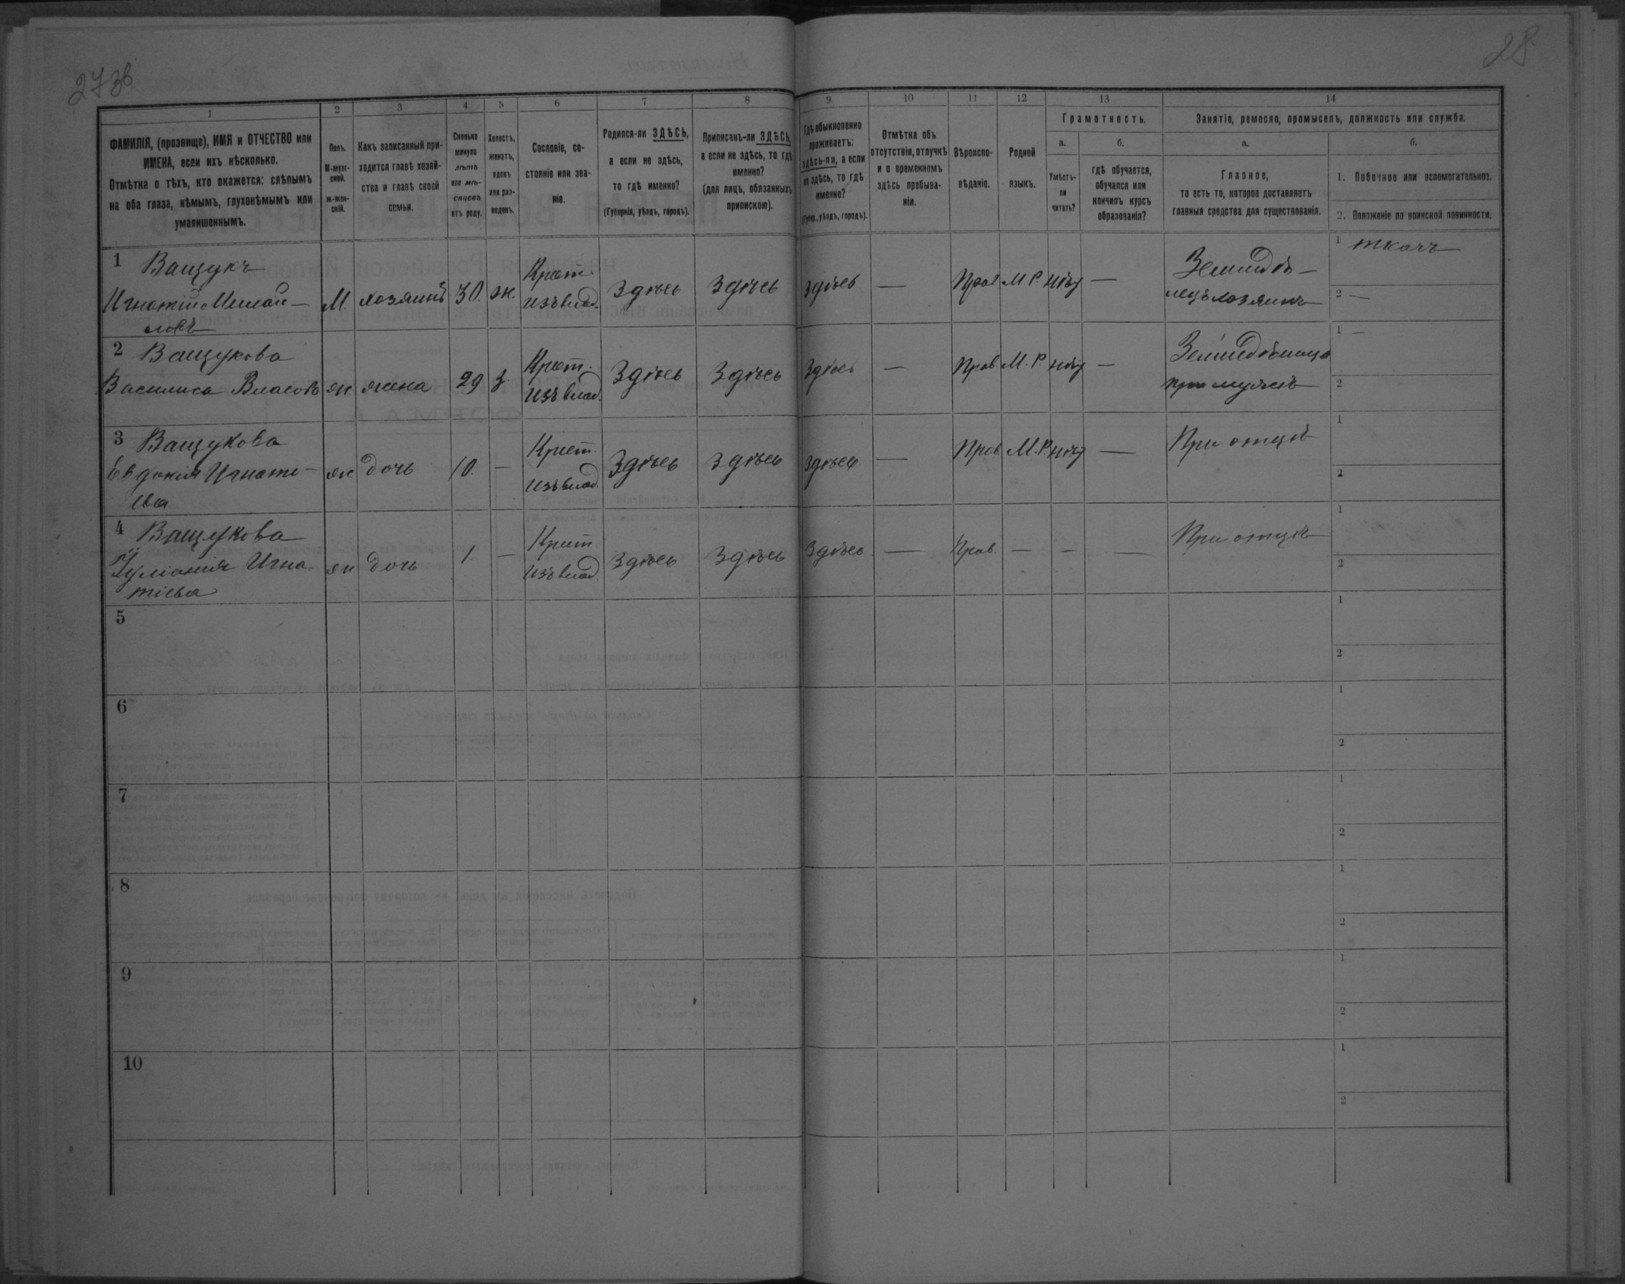 27зв
28
1
2
3
4
5
6
7
8
9
10
11
12
13
14
ФАМИЛІЯ, (прозвище), ИМЯ и ОТЧЕСТВО или
ИМЕНА, если ихъ нѣсколько.
Отмѣтка о тѣхъ, кто окажется: слѣпымъ
на оба глаза, нѣмымъ, глухонѣмымъ или
умалишеннымъ.
Полъ.
М-муж-
ской.
ж-жен-
скій.
Какъ записанный при-
ходится главѣ хозяй-
ства и главѣ своей
семьи.
Сколько
минуло
лѣтъ
или мѣ-
сяцевъ
отъ роду.
Холостъ,
женатъ,
вдовъ
или раз-
веденъ.
Сословіе, со-
стояніе или зва-
ніе.
Родился-ли ЗДѢСЬ,
а если не здѣсь,
то гдѣ именно?
(Губернія, уѣздъ, городъ).
Приписанъ-ли ЗДѢСЬ,
а если не здѣсь, то гдѣ
именно?
(для лицъ, обязанныхъ
припискою).
Гдѣ обыкновенно
проживаетъ:
здѣсь-ли, а если
не здѣсь, то гдѣ
именно?
(Губер., уѣздъ, городъ).
Отмѣтка объ
отсутствіи, отлучкѣ
и о временномъ
здѣсь пребыва-
ніи.
Вѣроиспо-
вѣданіе.
Родной
языкъ.
Грамотность.
а.
Умѣетъ-
ли
читать?
б.
Гдѣ обучается,
обучался или
кончилъ курсъ
образованія?
Занятіе, ремесло, промыселъ, должность или служба.
а.
Главное,
то есть то, которое доставляетъ
главныя средства для существованія.
б.
1. Побочное или вспомогательное.
2. Положеніе по воинской повинности.
1 Ващукъ
Игнатій Михай-
ловъ
М. хозяинъ 30. ж. Крест. изъ влад. Здѣсь Здѣсь Здѣсь — Прав М.Р. нѣт —
Земледѣ-
лецъ хозяинъ
1 ткачъ
2 —
2 Ващукова
Василиса Власова ж. жена 29 з. Крест. изъ влад. Здѣсь Здѣсь Здѣсь — Прав М.Р. нѣт —
Земледѣлица
при мужѣ
1 —
2
3 Ващукова
Евдокія Игнате-
ва
ж. дочь 10. — Крест. изъ влад. Здѣсь Здѣсь Здѣсь — Прав М.Р. нѣт — При отцѣ
1
2
4 Ващукова
Іуліанія Игна
тіева
ж дочь 1. — Крест изъ влад. Здѣсь Здѣсь Здѣсь — Прав — — — При отцѣ
1
2
5
1
2
6
1
2
7
1
2
8
1
2
9
1
2
10
1
2